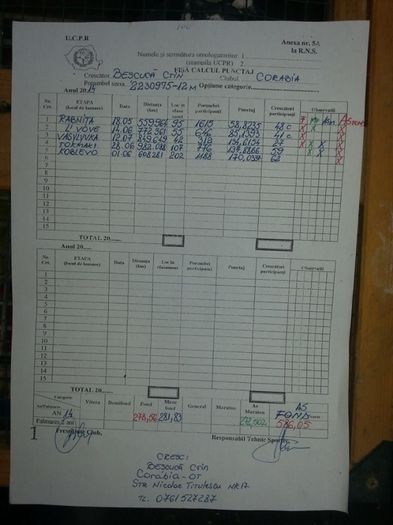 U.C.P.R
Anexa nr. 5A
la R.N.S.
Numele și semnătura omologatorilor: 1
(stampila UCPR) 2.
FIȘA CALCUL PUNCTAJ
Crescător BESCUCĂ CTIN Clubul CORABIA
Porumbel seria 2230975-12 M Opțiune categorie
Anul 2014
No. Crt. ETAPA (locul de lansare) Data Distanța (km) Loc în clasament Porumbei participanți Punctaj Crescători participanți Observații
1 RABNIȚA 18.05 559,964 95 1615 58,8235 48 c X X
2 L'VOVE 14.06 772,361 55 646 85,1393 41 c X X
3 VASYLIVKA 12.07 X
4 TOKMAKI 28.06 982,088 107 27 X X X
5 KOBLEVO 01.06 608,281 202 1188 170,039 62 X
6
7
8
9
10
11
12
13
14
15
TOTAL 20
Anul 20
No. Crt. ETAPA (locul de lansare) Data Distanța (km) Loc în clasament Porumbei participanți Punctaj Crescători participanți Observații
1
2
3
4
5
6
7
8
9
10
11
12
13
14
15
TOTAL 20
Categorie Viteza Demifond Fond Mare fond General Maraton As Maraton AS FOND
AN 14 278,56 281,83 586,05
Palmares 2 ani
Președinte Club, Responsabil Tehnic Sportiv,
1
CRESC:
BESCUCĂ CTIN
CORABIA - OT
STR Nicolae Titulescu NR 17
TL. 0761527287